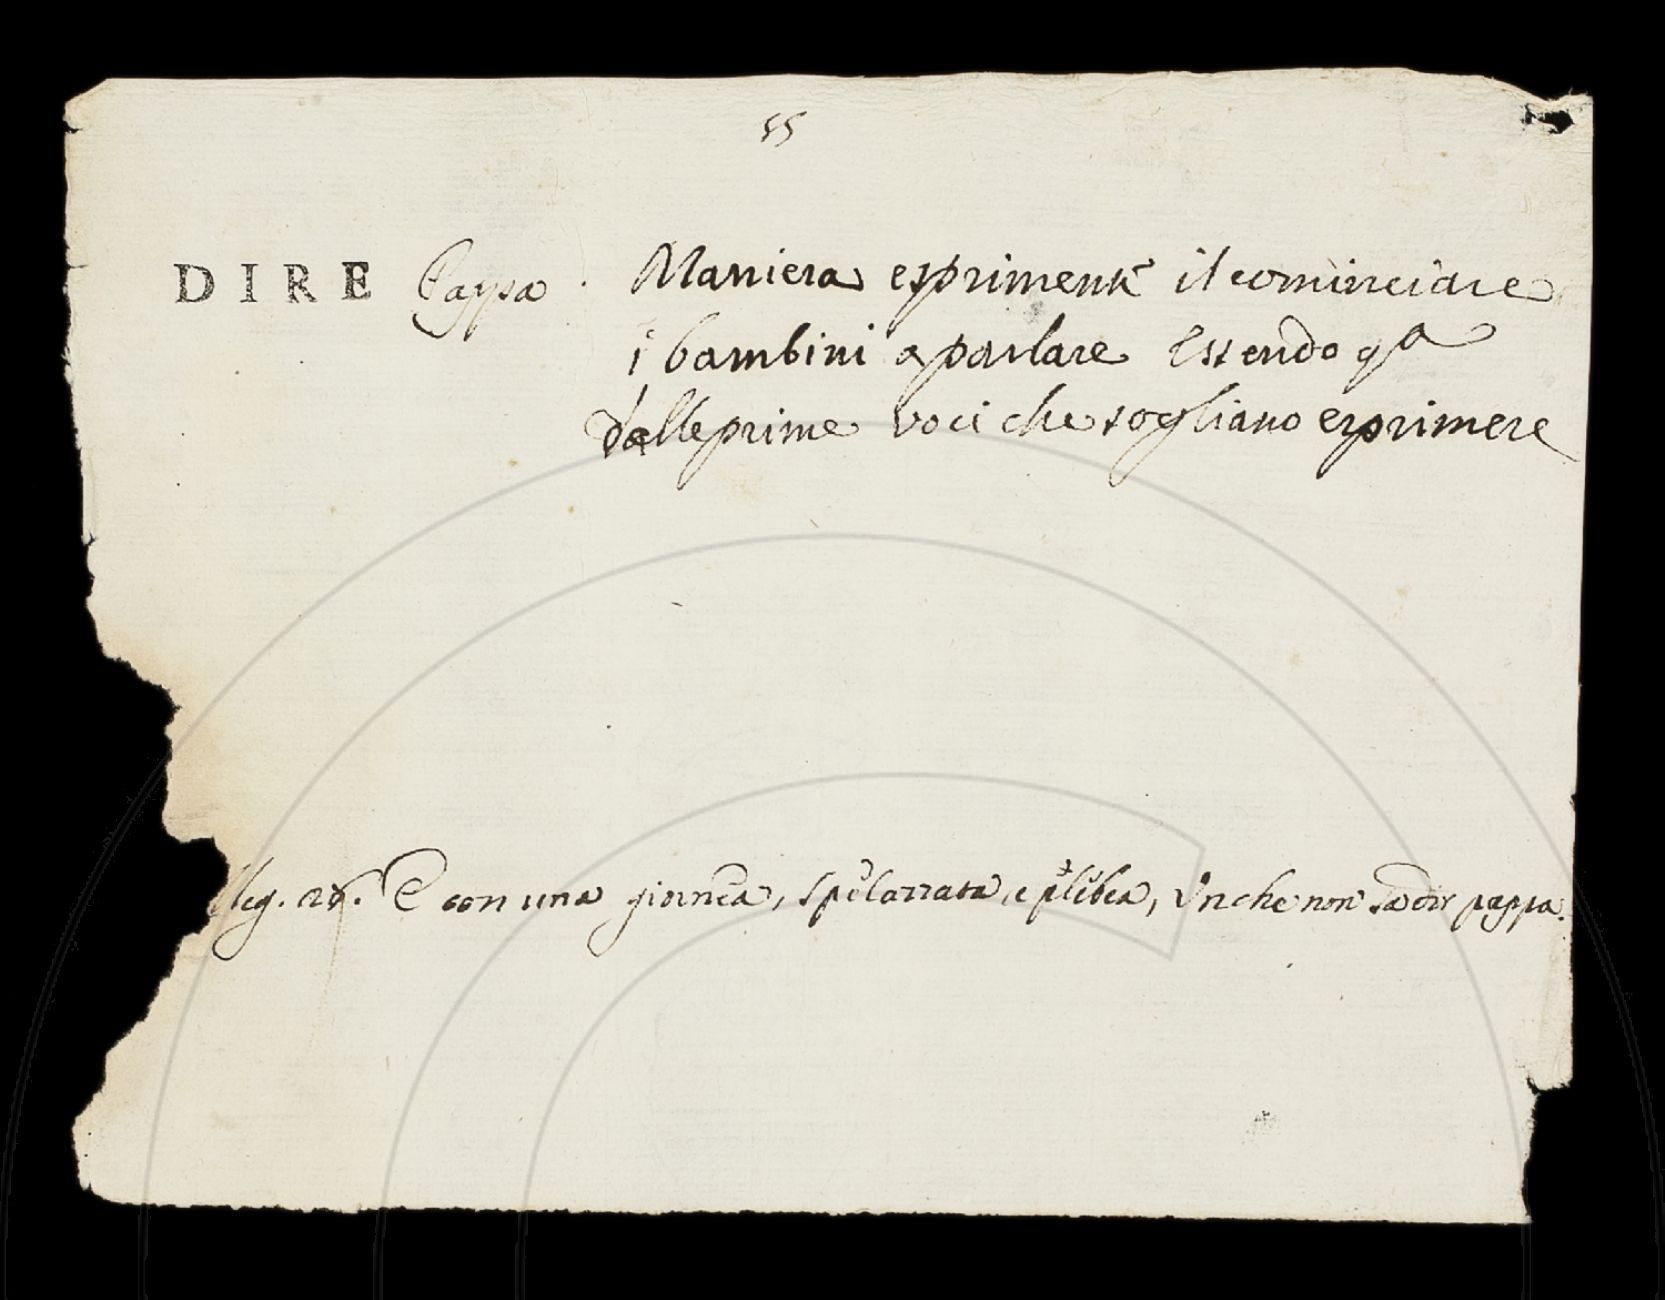 55
DIRE Pappa. Maniera esprimente il cominciare
i bambini a parlare Essendo qa
delle prime voci che sogliano esprimere
leg. E con una giornea, spelazzata, e plebea, In che non sa dir pappa.